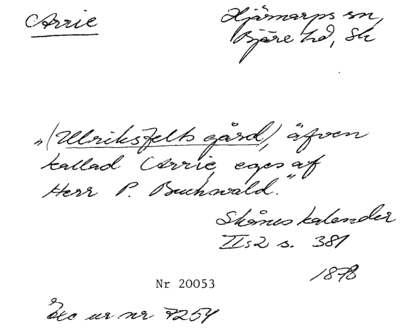 Arrie
Hjärnarps sn,
Bjäre hd, Sk
"(Ulriksfelts gård), äfven
kallad Arrie, eges af
Herr P. Buchwald."
Skånes kalender
II:2 s. 381
1878
Nr 20053
Exc ur nr 7254